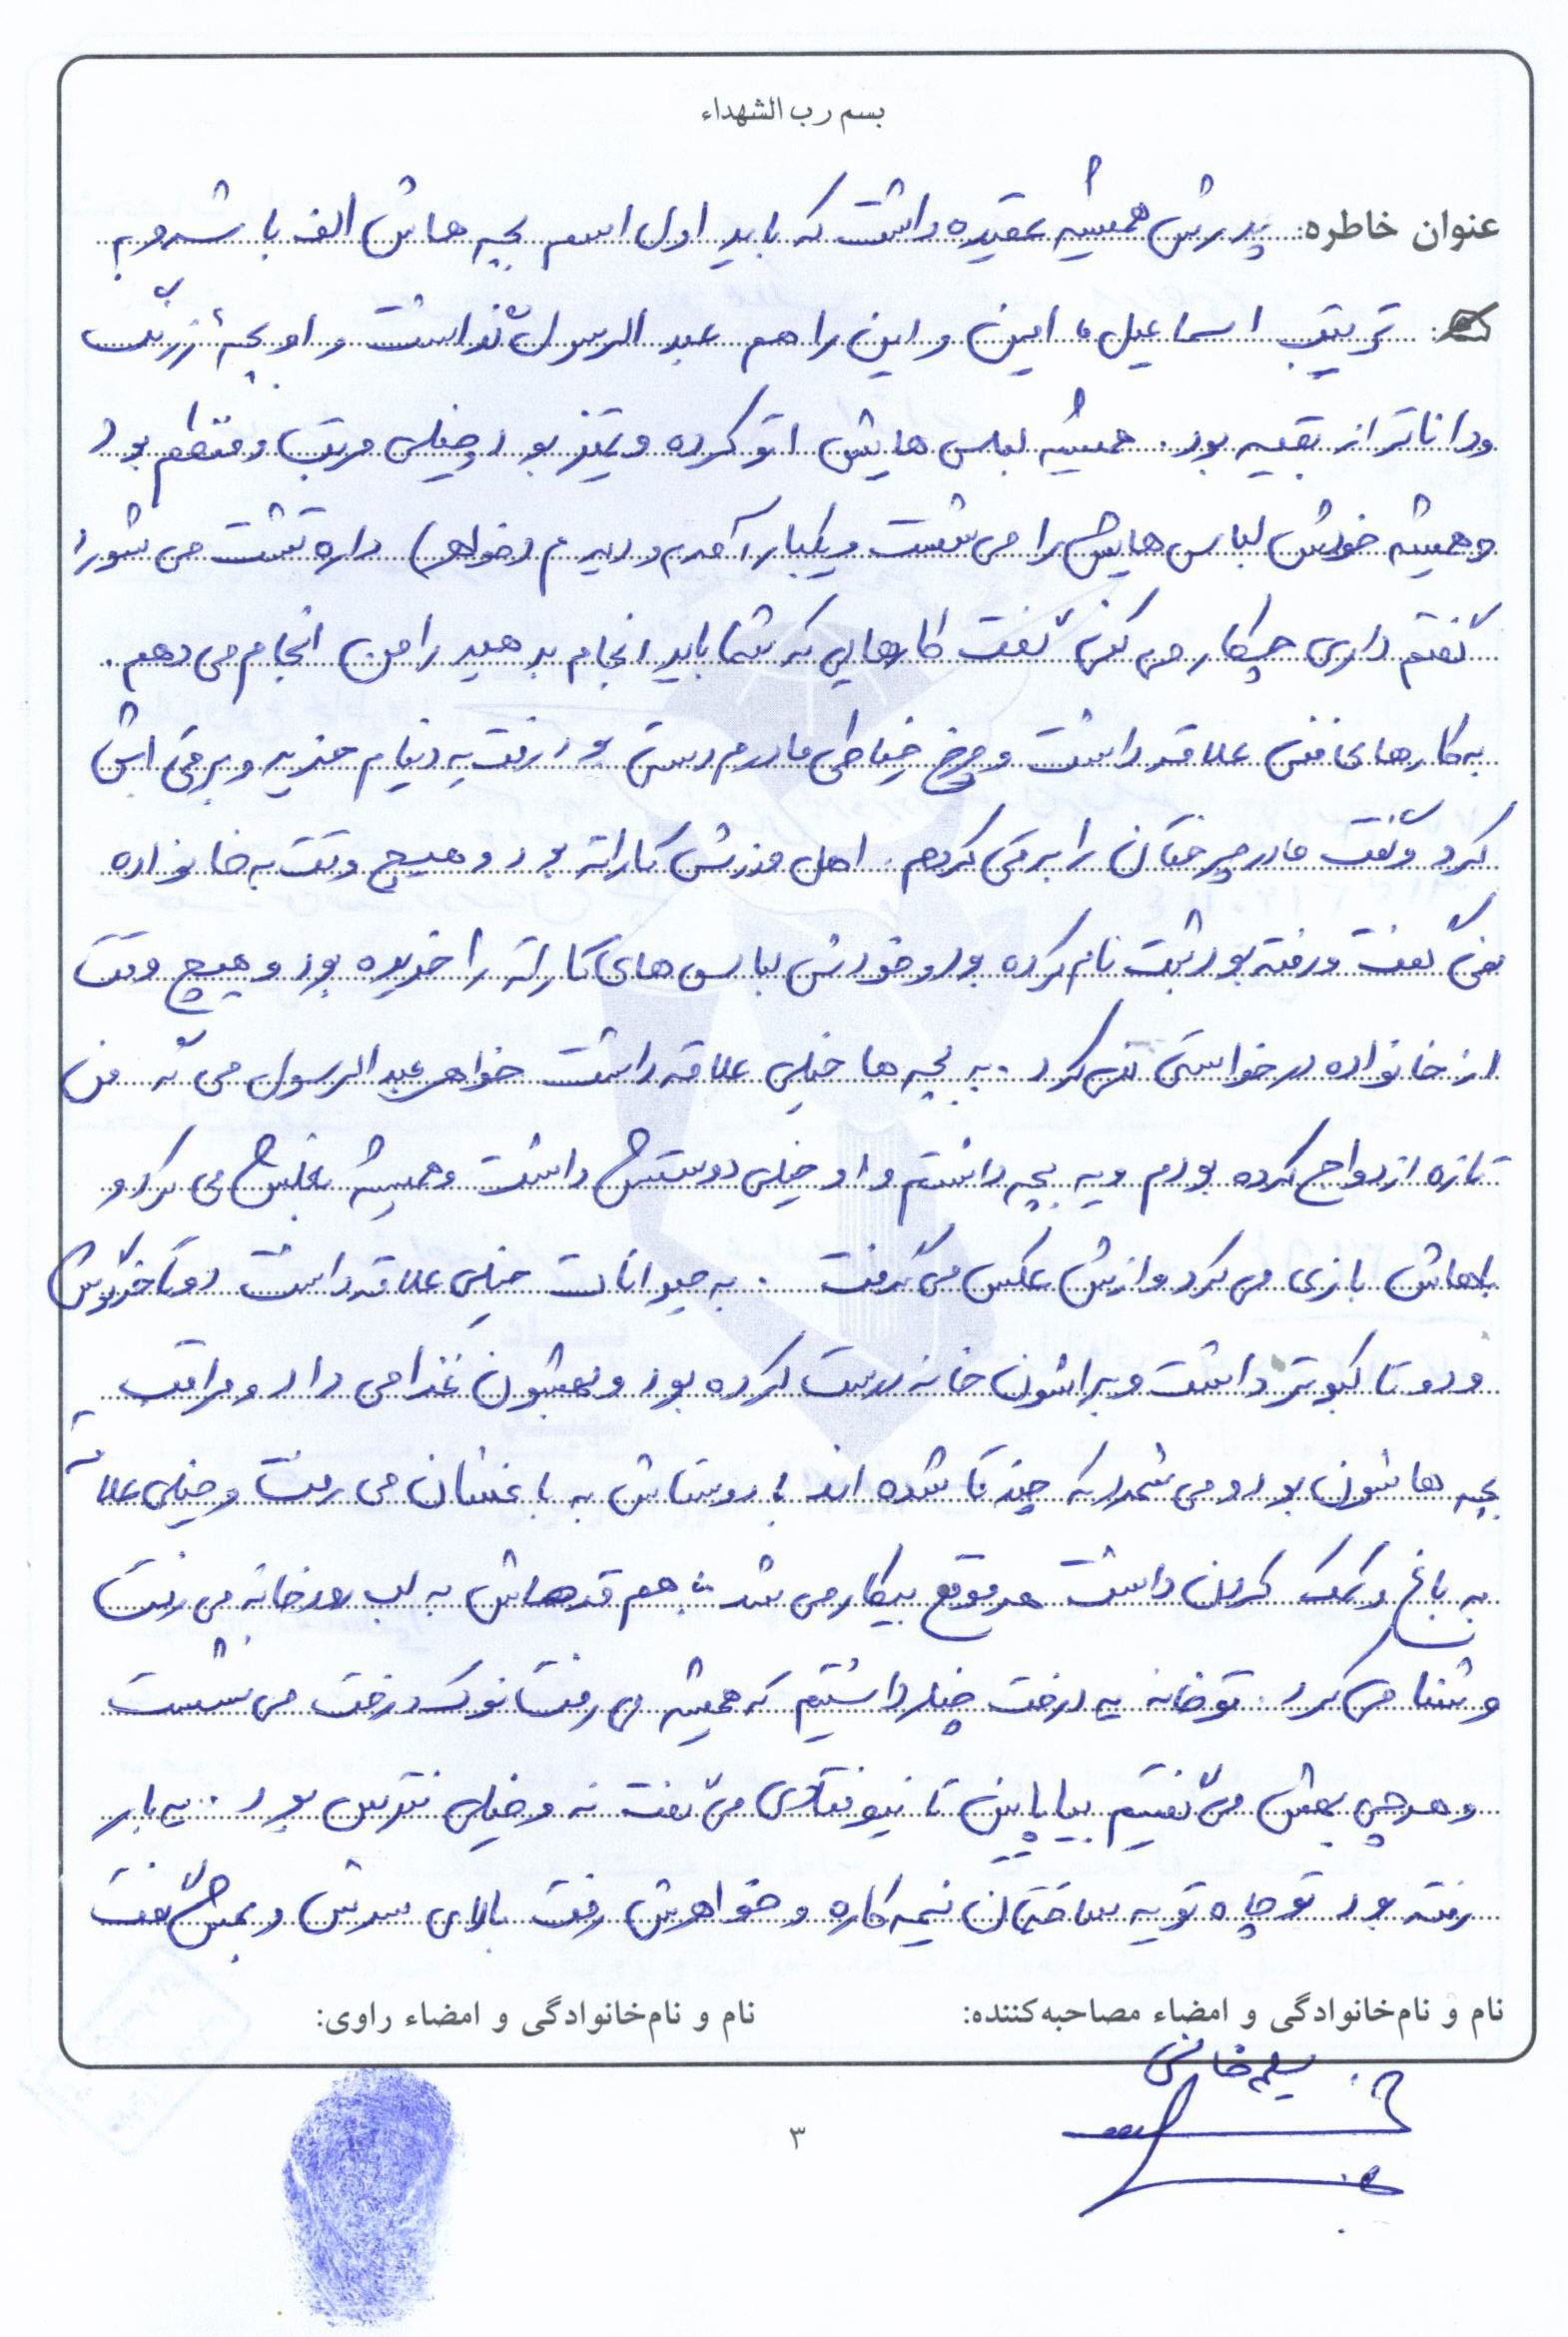 بسم رب الشهداء
عنوان خاطره: پدرش همیشه عقیده داشت که باید اول اسم بچه هاش الف باشد و به
ترتیب اسماعیل، امین و این را هم عبدالرسول گذاشت و او بچهٔ زرنگ
و داناتر از بقیه بود. همیشه لباس هایش اتو کرده و تمیز بود و خیلی مرتب و منظم بود
و همیشه خودش لباس هایش را می شست و یکبار آمدم و دیدم (خواهر) داره تشت می شورد
گفتم داری چیکار می کنی گفت کارهایی که شما باید انجام بدهید را من انجام می دهم.
به کارهای فنی علاقه داشت و چرخ خیاطی مادرم دستی بود رفت یه دینام خرید و برقی اش
کرد و گفت مادر چرختان را برقی کردم. اهل ورزش کاراته بود و هیچ وقت به خانواده
نمی گفت و رفته بود ثبت نام کرده بود و خودش لباس های کاراته را خریده بود و هیچ وقت
از خانواده درخواستی نمی کرد. به بچه ها خیلی علاقه داشت خواهر عبدالرسول می گه من
تازه ازدواج کرده بودم و یه بچه داشتم و او خیلی دوستش داشت و همیشه بغلش می کرد و
باهاش بازی می کرد و ازش عکس می گرفت. به حیوانات خیلی علاقه داشت دوتا خرگوش
و دوتا کبوتر داشت و براشون خانه درست کرده بود و بهشون غذا می داد و مراقب
بچه هاشون بود و می شمرد که چند تا شده اند با دوستاش به باغشان می رفت و خیلی علاقه
به باغ و کمک کردن داشت هر موقع بیکار می شد با هم قدهاش به لب رودخانه می رفت
و شنا می کرد. تو خانه یه درخت چنار داشتیم که همیشه می رفت نوک درخت می نشست
و هر چی بهش می گفتیم بیا پایین تا نیوفتادی می گفت نه و خیلی نترس بود. یه بار
رفته بود تو چاه تو یه ساختمان نیمه کاره و خواهرش رفت بالای سرش و بهش گفت
نام و نام خانوادگی و امضاء مصاحبه کننده: نام و نام خانوادگی و امضاء راوی:
۳